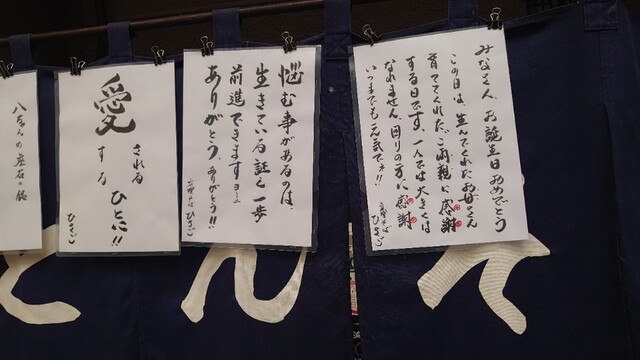 みなさん、お誕生日おめでとう
この日は、生んでくれたお母さん
育ててくれた、ご両親に感謝
する日です、一人では大きくは
なれません、周りの方に感謝
いつまでも元気でネ!!
ひさご
悩む事があるのは、
生きている証と一歩
前進できますョ
ありがとう、ありがとう!!
ひさご
愛
される
する
ひとに!!
ひさご
八起の座右の銘
とん